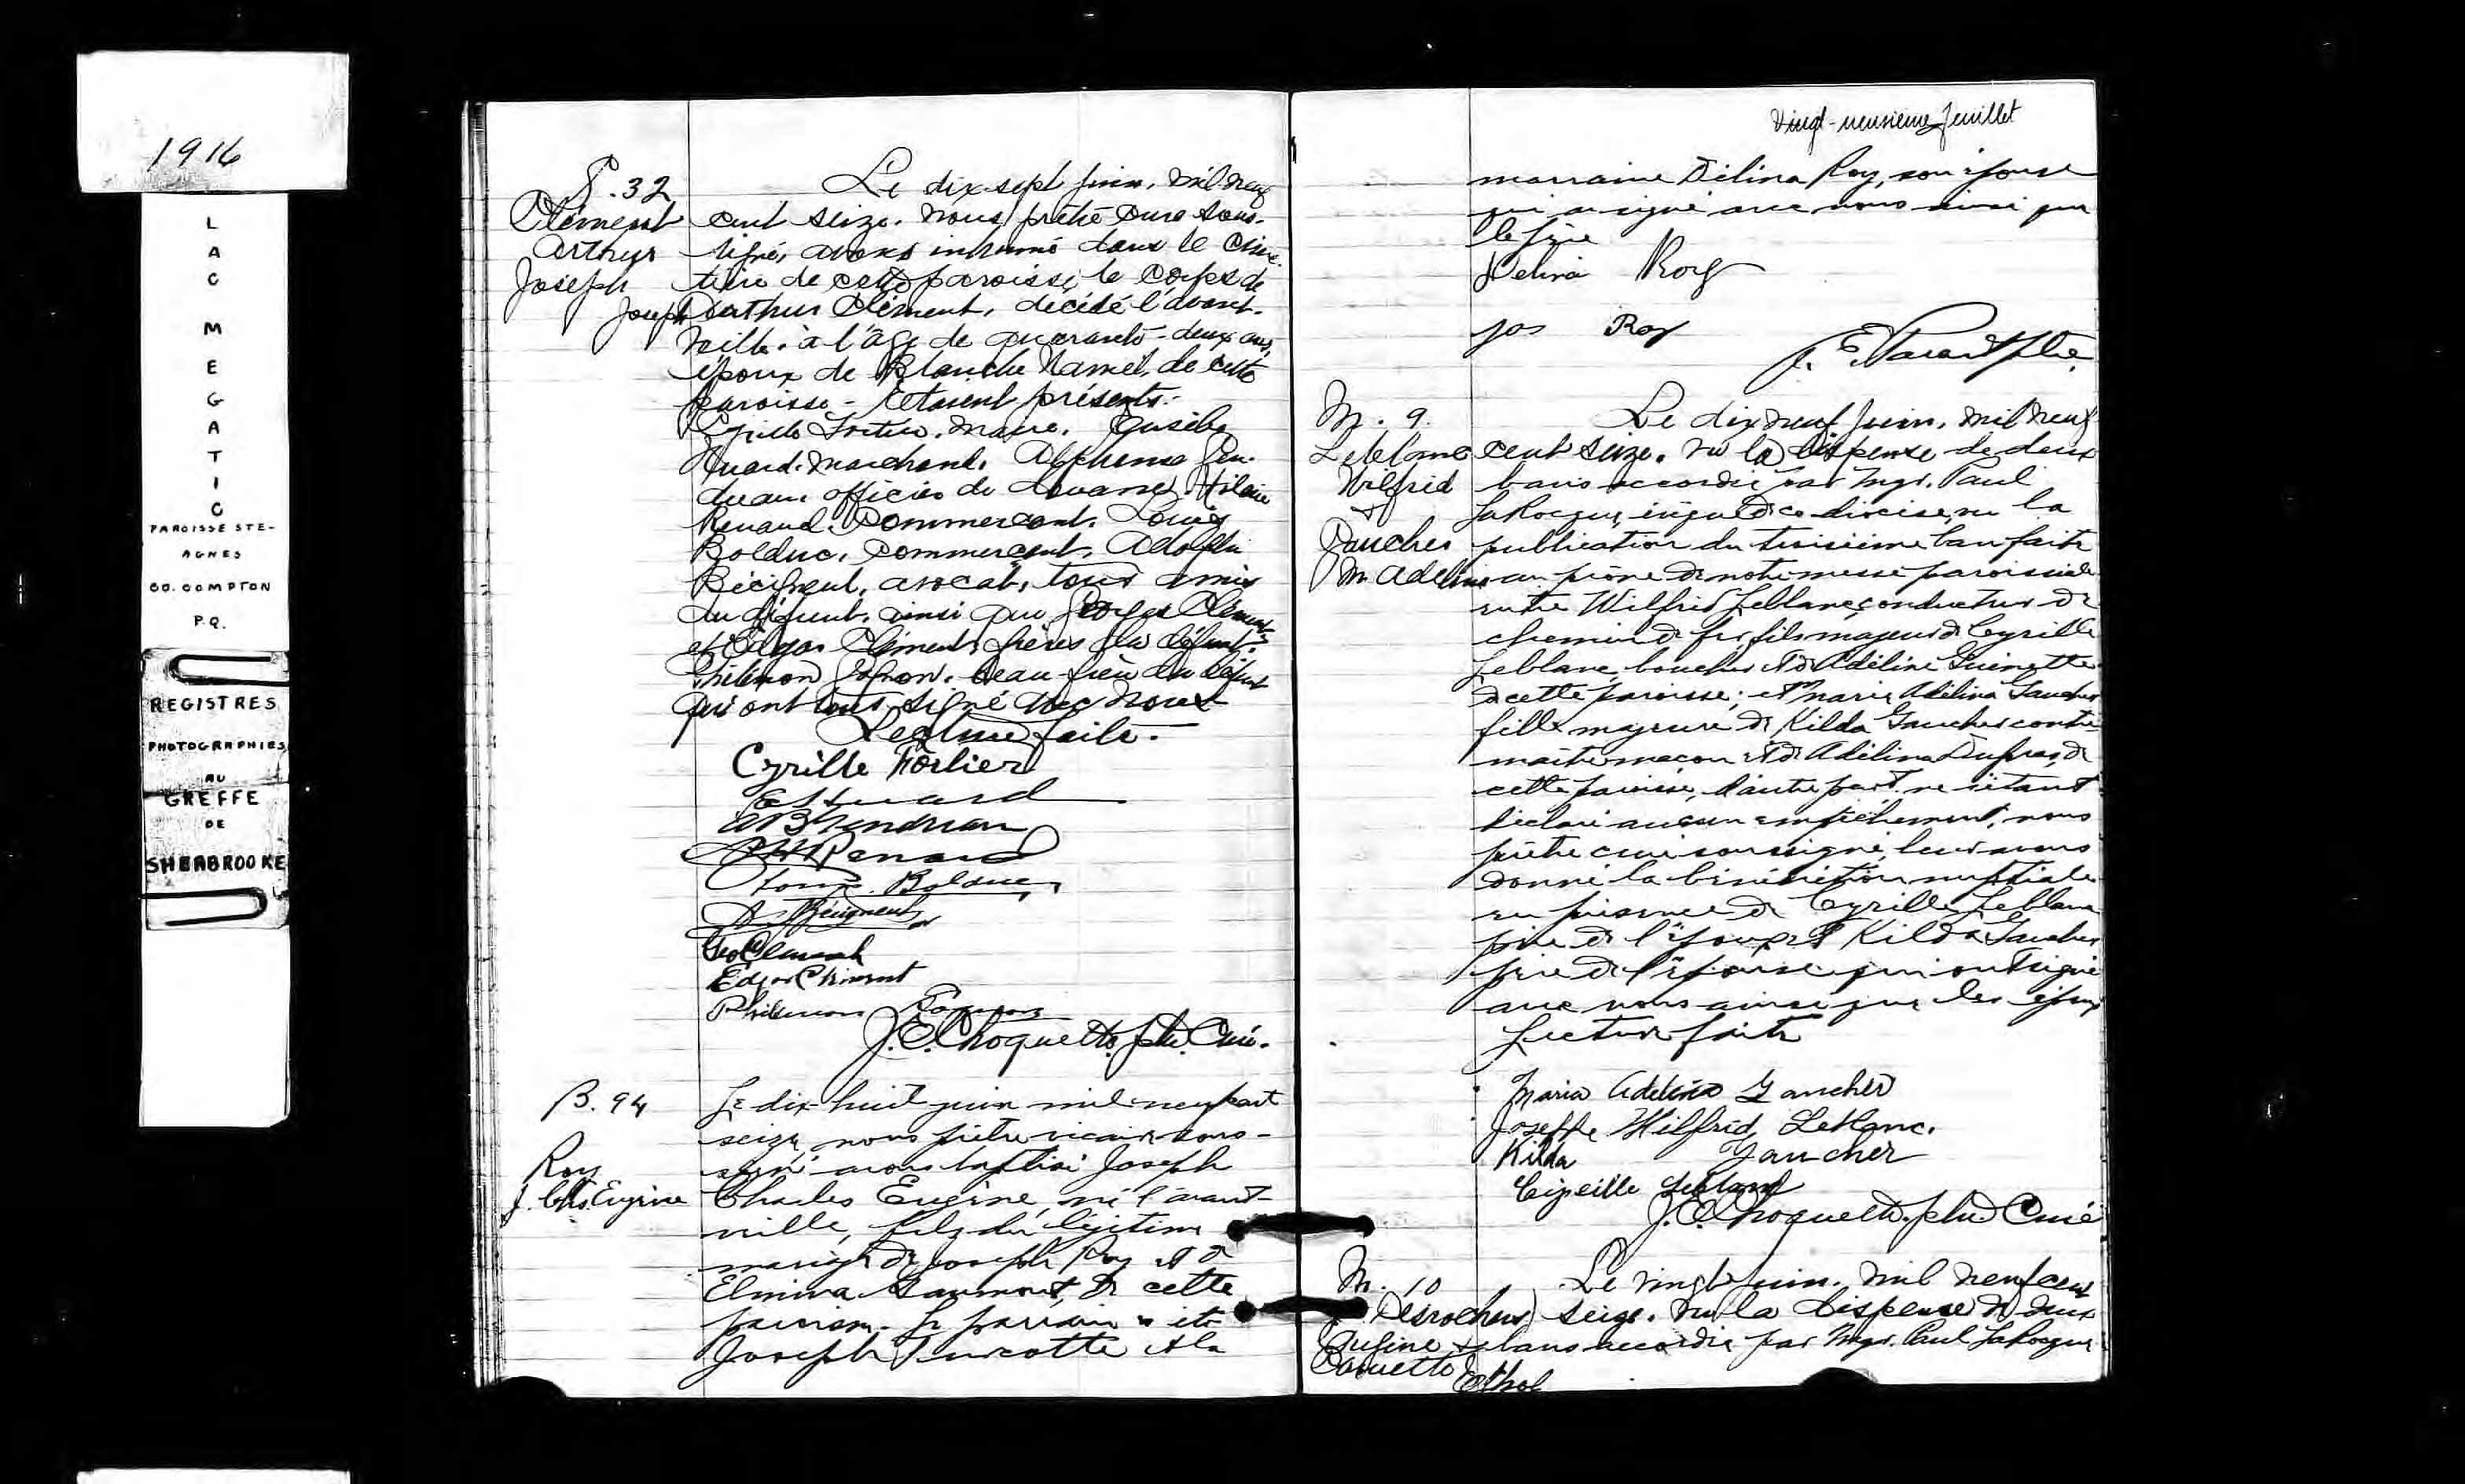 1916
LAC MEGANTIC
PAROISSE STE-
AGNES
CO. COMPTON
P.Q.
REGISTRES
PHOTOGRAPHIES
AU
GREFFE
DE
SHERBROOKE
S. 32
Clément
Arthur
Joseph
Le dix-sept juin, mil neuf
cent seize, nous prêtre curé sous-
signé, avons inhumé dans le cime-
tière de cette paroisse le corps de
Joseph Arthur Clément, décédé l'avant-
veille, à l'âge de quarante-deux ans,
époux de Blanche Hamel, de cette
paroisse - Étaient présents:
Cyrille Fortier, maire, Eusèbe
Huard, marchand, Alphonse Gen-
dreau, officier de douane, Hilaire
Renaud, commerçant, Louis
Bolduc, commerçant, Adolphe
Bécigneul, avocat, tous amis
du défunt, ainsi que Georges Clément
et Edgar Clément, frères du défunt,
Philémon Gagnon, beau-frère du défunt
qui ont tous signé avec nous
Lecture faite.
Cyrille Fortier
E Huard
Renaud
Louis Bolduc
A. Bécigneul
Geo Clement
Edgar Clément
Philemon
J.E. Choquette, ptre. Curé.
B. 94
Roy
J. Chs. Eugène
Le dix-huit juin mil neuf cent
seize, nous prêtre vicaire sous-
signé avons baptisé Joseph
Charles Eugène, né l'avant-
veille, fils du légitime
mariage de Joseph Roy et de
Elmina Gaumont, de cette
paroisse. Le parrain a été
Joseph Turcotte et la
Vingt-neuvième feuillet
marraine Délina Roy, son épouse
qui a signé avec nous ainsi que
le père
Delina Roy
Jos Roy
J. E. Parent Ptre.
M. 9.
Leblanc
Wilfrid
&
Gaucher
M. Adelina
Le dix neuf juin, mil neuf
cent seize, vu la dispense de deux
bans accordée par Mgr. Paul
LaRocque, évêque de ce diocèse, vu la
publication du troisième ban faite
au prône de notre messe paroissiale
entre Wilfrid Leblanc, conducteur de
chemin de fer, fils majeur de Cyrille
Leblanc, boucher et de Adéline Guinette
de cette paroisse; et Maria Adélina Gaucher
fille majeure de Kilda Gaucher contre-
maître maçon et de Adélina Dupras, de
cette paroisse, d'autre part, ne s'étant
déclaré aucun empêchement, nous
prêtre curé soussigné, leur avons
donné la bénédiction nuptiale
en présence de Cyrille Leblanc
père de l'époux et Kilda Gaucher
père de l'épouse qui ont signé
avec nous ainsi que les époux
Lecture faite
Maria Adelina Gaucher
Joseph Wilfrid Leblanc.
Kilda Gaucher
Leblanc
J.E. Choquette, ptre. Curé
M. 10
Desrochers
Eugène &
Paquette
Ethel
Le vingt juin, mil neuf cent
seize, vu la dispense de deux
bans accordée par Mgr. Paul LaRocque